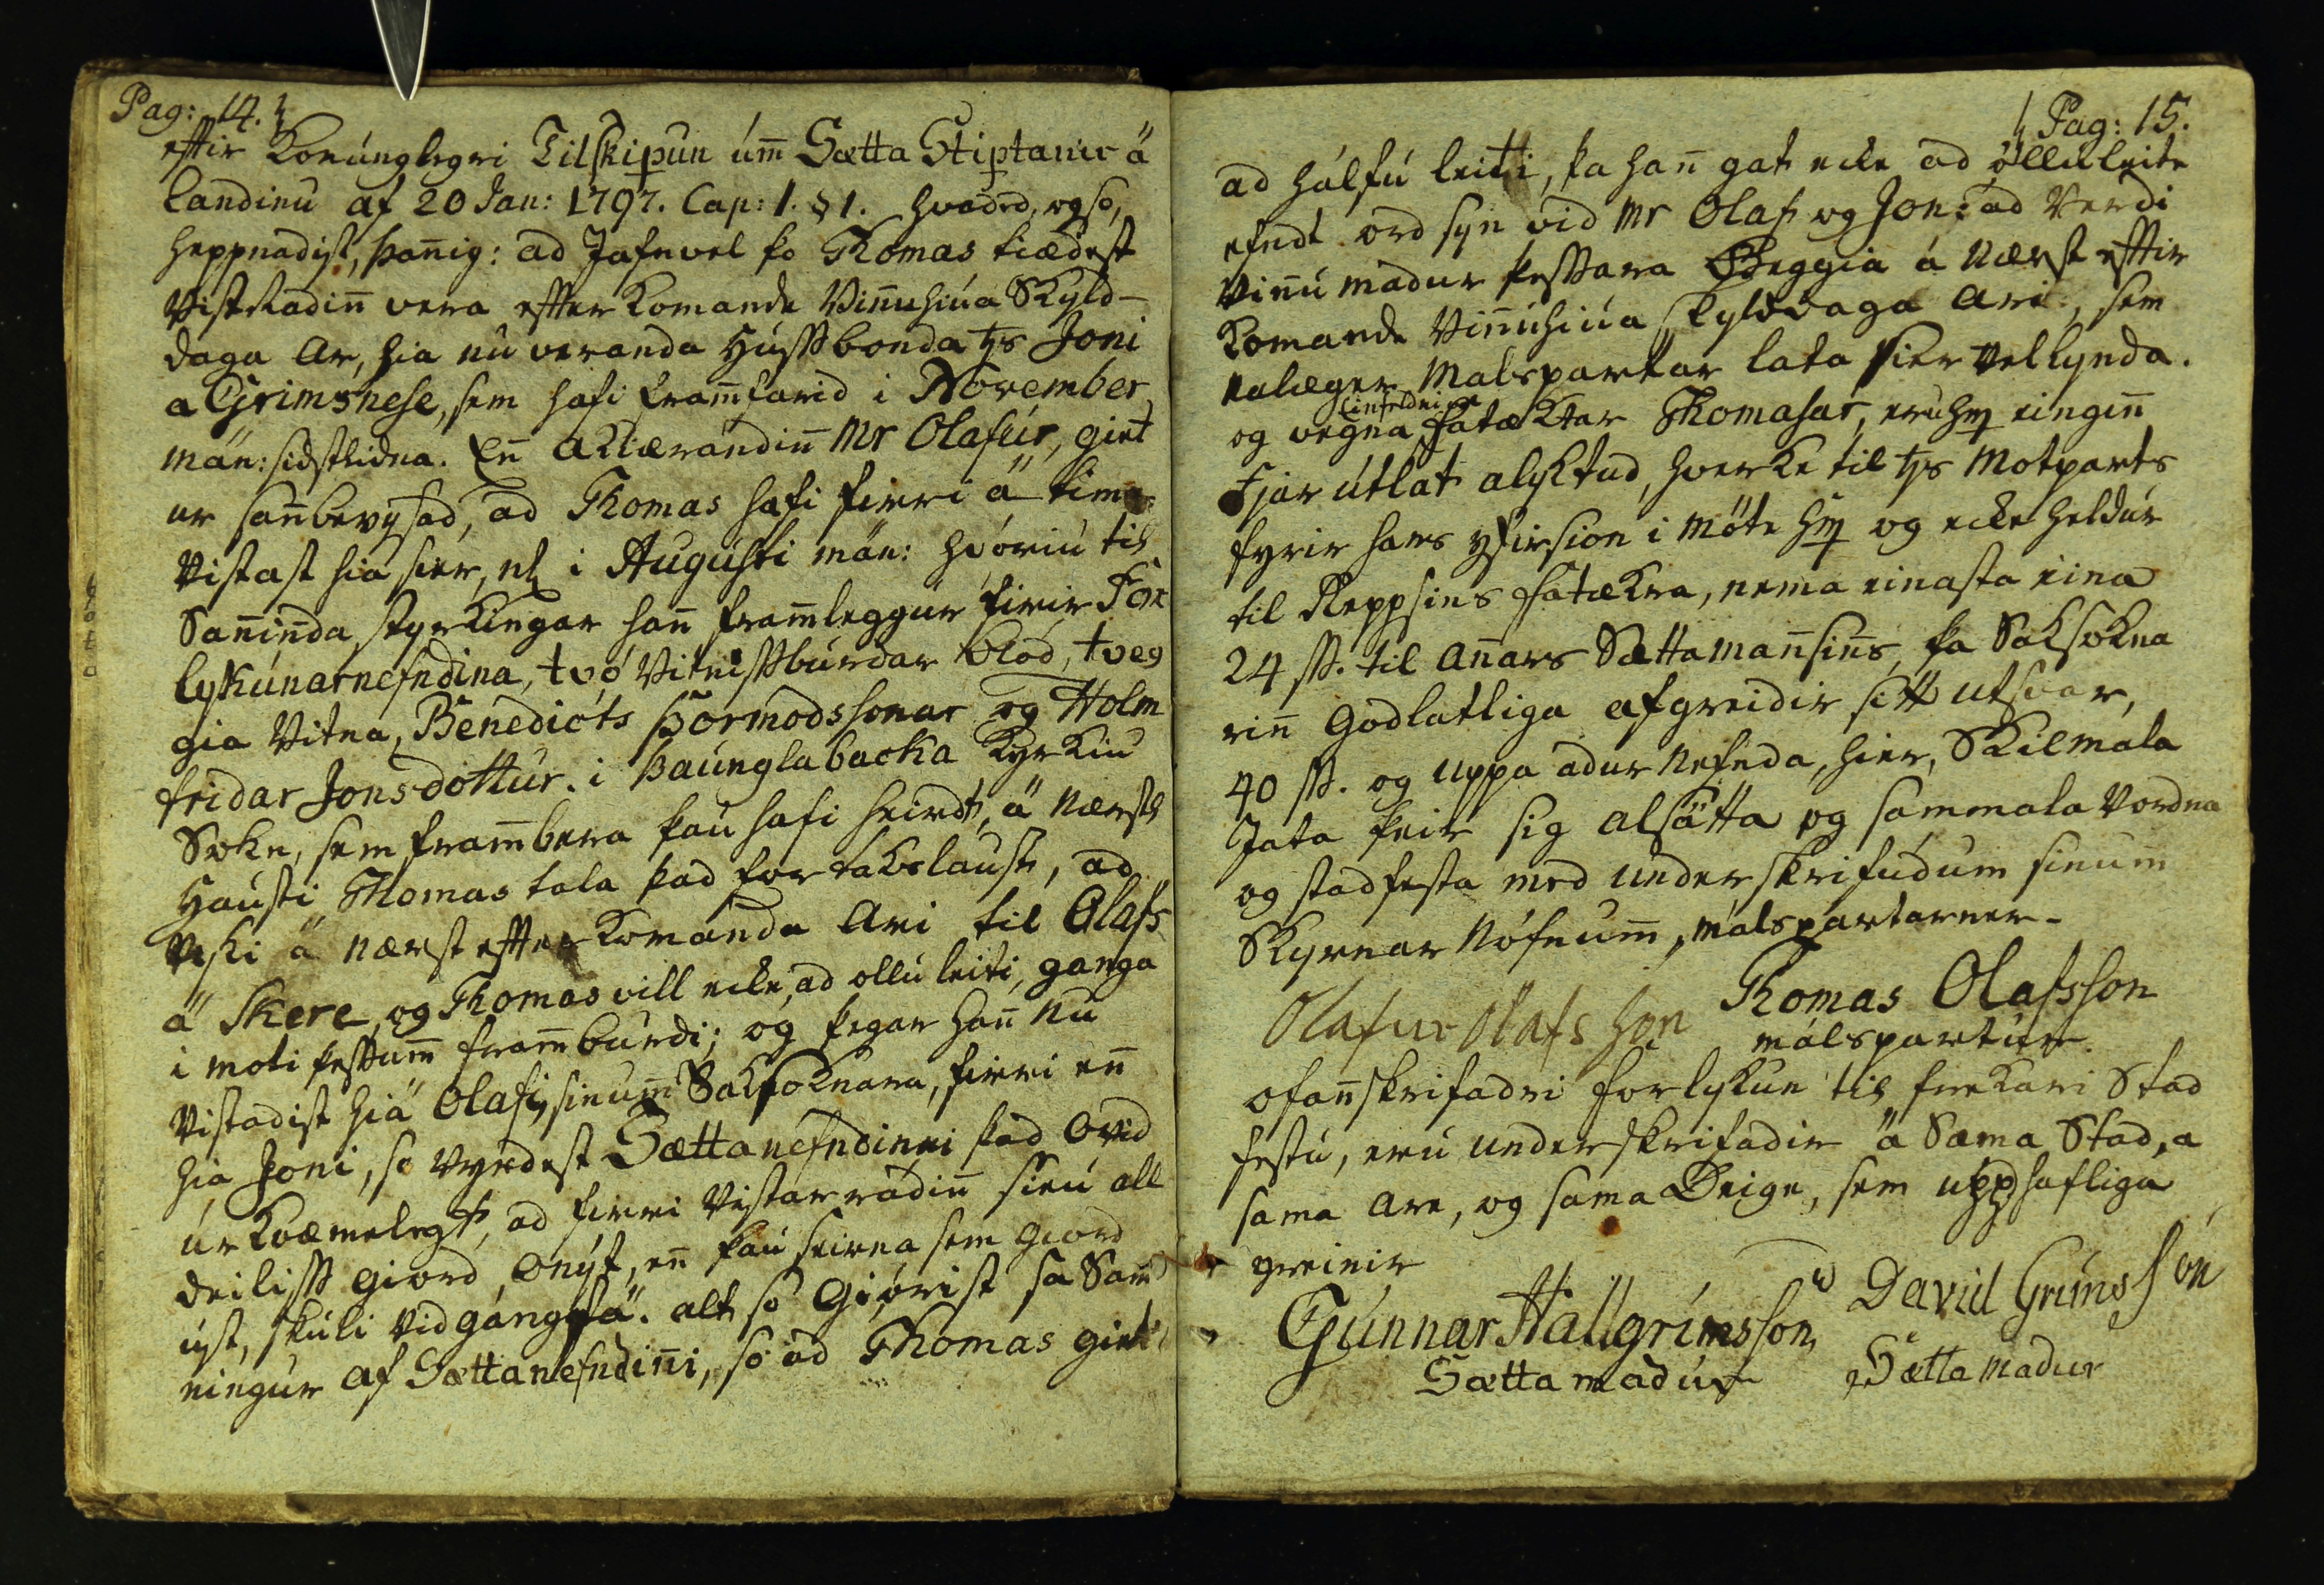 Pag: 14.
eftir Konúnglegri Tilskipun úm̄ Sætta Stiptanir ä
landinu af 20 Jan: 1797. Cap: 1. § 1. hvadrd, og so,
heppnadist, þan̄ig: ad Jafnvel þo Thomas tiædest
Vistrádin̄ vera effter komande Vin̄uhiúa Skyld-
daga Ar, hia nu veranda Húsbonda hs Joni
a Grimsnese, sem hafi fram̄farid i November
män: sidstlidna. En̄ Aklærandin̄ Mr Olafúr, giet
ur san̄bevysad, ad Thomas hafi firri ä tima
Vistast hia sier, nl i Augústi män: hvöriu til
San̄inda styrkingar han̄ fram̄leggúr firir For
lykúnarnefndina, tvö Vitnisbúrdar blöd, tveg
gia Vitna, Benedicts Þormodssonar og Holm
fridar Jonsdottur. i Þaúnglabacka Kyrkiu
Sokn, sem fram̄bera þau hafi heirdt, ä nærste
Haústi Thomas tala þad fortakslaust, ad
Veski ä nærst effter komanda Ari til Olafs
ä Skere, og Thomas vill ecke, ad ollú leiti, ganga
i moti þessum̄ fram̄búrdi; og þegar han̄ nu
Vistadist hiä Olafi, sinum̄ Saksoknara, firri en̄
hia Joni, so Vyrdest Sættanefndinni þad Ovid
úrkvæmelegt, ad firri Vistarrädin̄ sieú all
deilis giord Onýt, en̄ þau seirna sem giord
úst, skúli vidgáng fä. alt so Giörist sa Sam̄
ningúr af Sættanefndin̄i, so ad Thomas giet
Pag: 15.
ad hálfú leiti, þa han̄ gat ecke ad öllú leite
efndt ord syn vid Mr Olaf og Jon: ad Verdi
Vin̄ú madur þessara Beggia á nærst effter
komande Vin̄úhiúa skylddaga Ari, sem
nalæger Malspartar lata sier vel lynda.
einfeldni
og vegna fatæktar Thomasar, eru hm eingin̄
Fjar útlat alyktud, hverke til hs Motparts
fyrir hans yfirsion i móte hm og ecke heldúr
til Reppsins fatækra, nema einasta eina
24 ß. til an̄ars Sættaman̄sin̄s, þa Saksokna
rin̄ Godlatliga afgreidir sitt utsvar,
40 ß. og uppa adur nefnda, hier, Skilmala
Jata þeir sig alsätta og sammala vordna
og stadfesta med underskrifudum sinum̄
Skyrnar nöfnum̄, málspartarner-
Olafur Olafs Son Thomas Olafsson
málspartúr
ofan̄skrifadri forlykun til frekari Stad
festú, erú underskrifadir ä Sama Stad, a
sama are, og sama Deige, sem upphafliga
greinir
Gúnnar Hallgrímsson David Grímsson
Sættamadúr Sættamadur